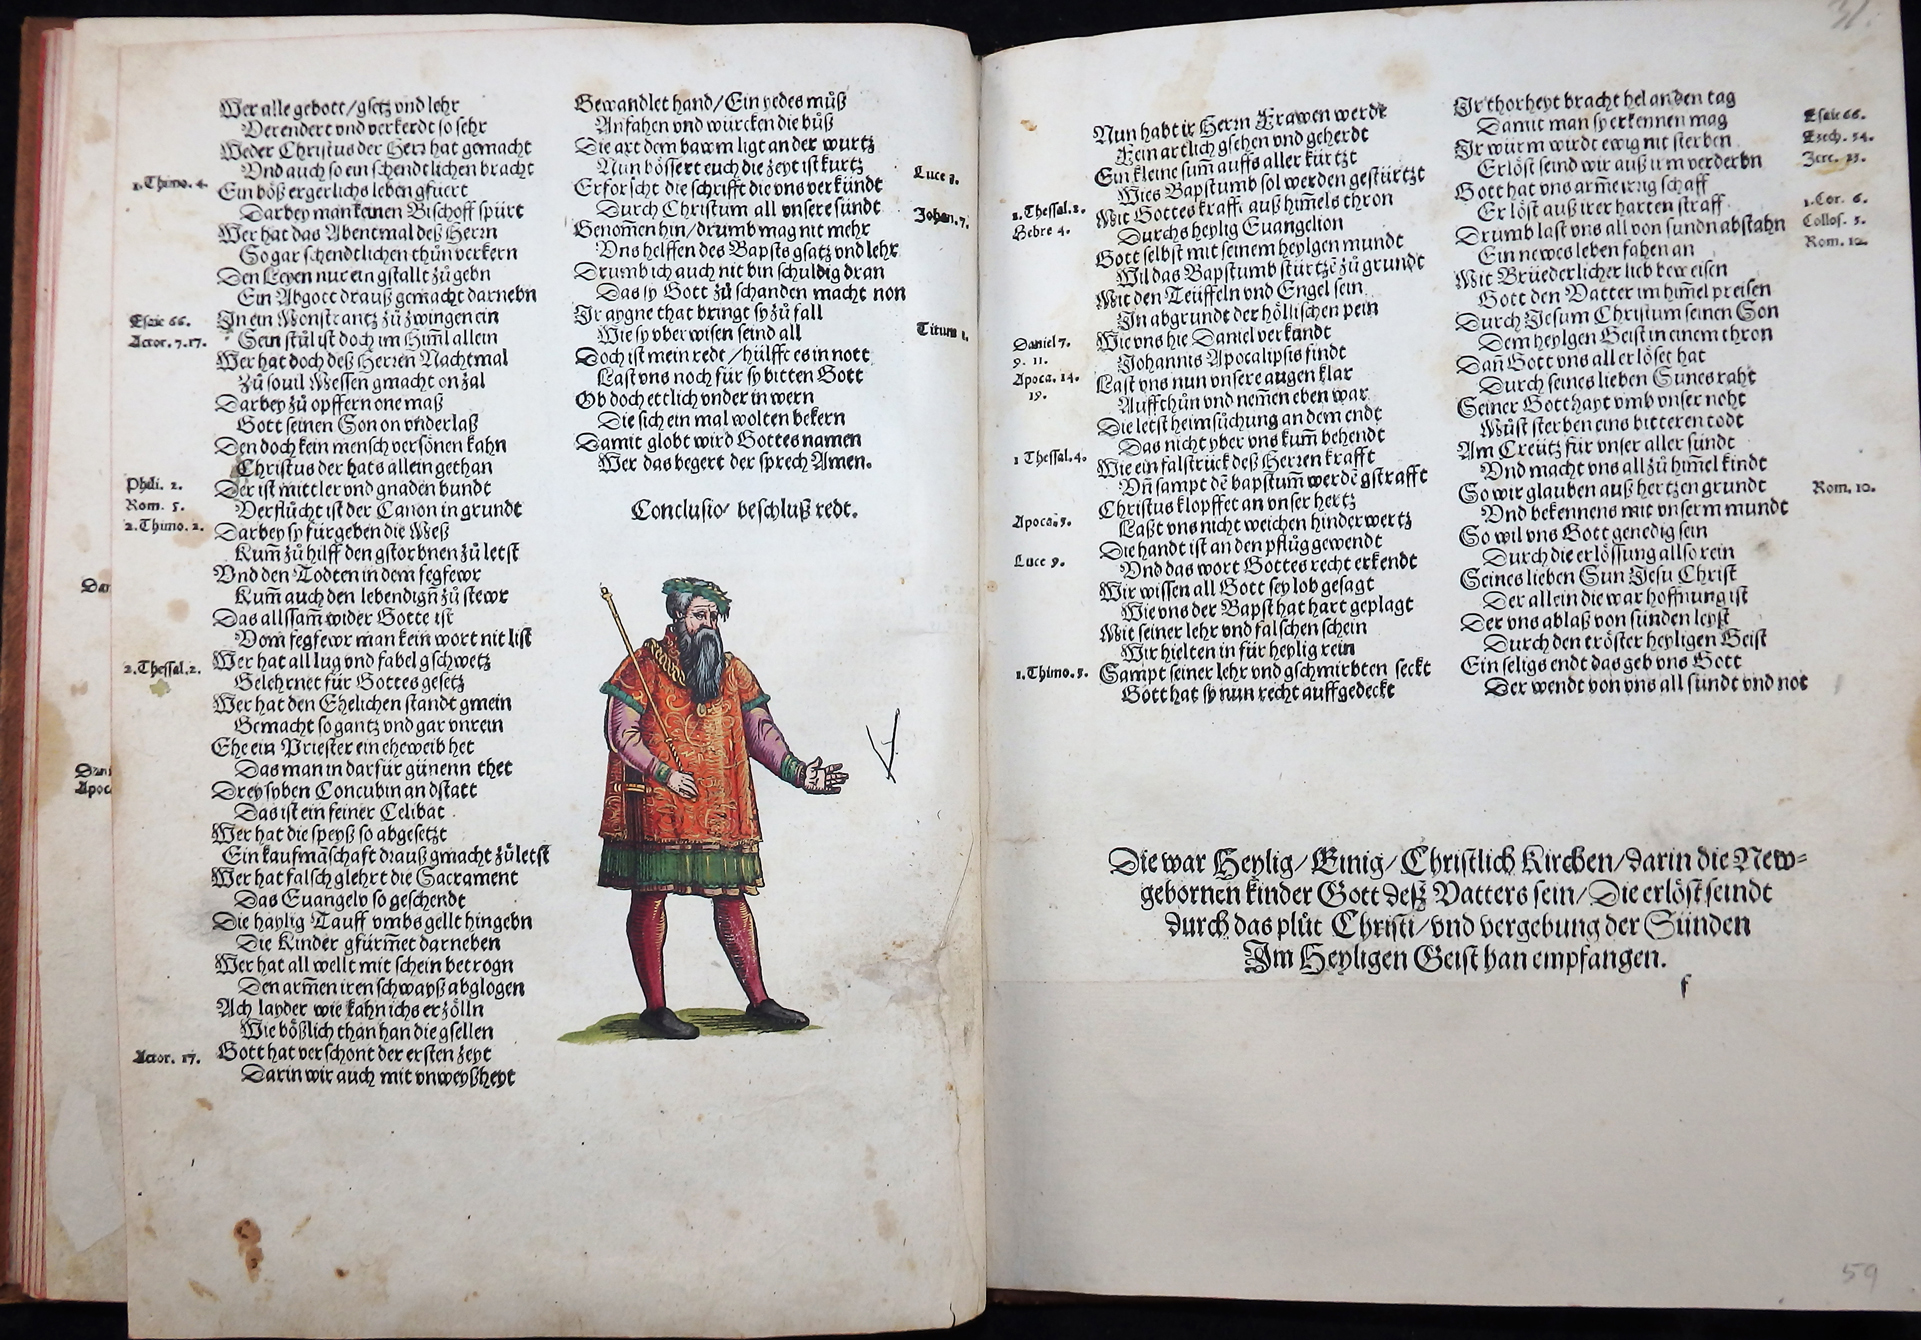 Wer alle gebott/gsetz vnd lehr
Verendert vnd verkerdt so sehr
Weder Christus der Herr hat gemacht
Vnd auch so ein schendtlichen bracht
1.Thimo. 4.
Ein böß ergerlichs leben gfüert
Darbey man keinen Bischoff spürt
Wer hat das Abentmal deß Herrn
So gar schendtlichen thůn verkern
Den Leyen nur ein gstallt zů gebn
Ein Abgott drauß gemacht darnebn
Esaie 66.
In ein Monstrantz zů zwingen ein
Actor. 7.17.
Sein stůl ist doch im Him̃l allein
Wer hat doch deß Herren Nachtmal
Zů souil Messen gmacht on zal
Darbey zů opffern one maß
Gott seinen Son on vnderlaß
Den doch kein mensch versönen kahn
Christus der hats allein gethan
Phili. 2.
Der ist mittler vnd gnaden bundt
Rom. 5.
Verflůcht ist der Canon in grundt
2.Thimo. 2.
Darbey sy fürgeben die Meß
Kum̃ zů hilff den gstorbnen zů letst
Vnd den Todten in dem fegfewr
Kum̃ auch den lebendign̄ zů stewr
Das allssam̃ wider Gotte ist
Vom fegfewr man kein wort nit list
2.Thessal.2.
Wer hat all lug vnd fabel gschwetz
Gelehrnet für Gottes gesetz
Wer hat den Ehelichen standt gmein
Gemacht so gantz vnd gar vnrein
Ehe ein Priester ein eheweib het
Das man in darfür günenn thet
Drey syben Concubin an dstatt
Das ist ein feiner Celibat
Wer hat die speyß so abgesetzt
Ein kaufmāschaft drauß gmacht zů letst
Wer hat falsch glehrt die Sacrament
Das Euangely so geschendt
Die haylig Tauff vmbs gellt hingebn
Die Kinder gfürm̃et darneben
Wer hat all wellt mit schein betrogn
Den arm̃en iren schwayß abglogen
Ach layder wie kahn ichs erzölln
Wie bößlich than han die gsellen
Actor. 17.
Gott hat verschont der ersten zeyt
Darin wir auch mit vnweyßheyt
Dan
Dani
Apoc
Gewandlet hand/Ein yedes můß
Anfahen vnd würcken die bůß
Die axt dem bawm ligt an der wurtz
Nun bössert euch die zeyt ist kurtz
Luce 3.
Erforscht die schrifft die vns verkündt
Durch Christum all vnsere sündt
Johan.7.
Genom̃en hin/drumb mag nit mehr
Vns helffen des Bapsts gsatz vnd lehr
Drumb ich auch nit bin schuldig dran
Das sy Gott zů schanden macht non
Ir aygne that bringt sy zů fall
Wie sy vberwisen seind all
Titum 1.
Doch ist mein redt/hülff es in nott
Last vns noch für sy bitten Gott
Ob doch ettlich vnder in wern
Die sich ein mal wolten bekern
Damit globt wird Gottes namen
Wer das begert der sprech Amen.
Conclusio/ beschluß redt.
31.
Nun habt ir Herrn Frawen werde
Fein artlich gsehen vnd geherdt
Ein kleine sum̃ auffs aller kürtzt
Wies Bapstumb sol werden gestürtzt
2. Thessal.2.
Mit Gottes krafft auß him̃els thron
Hebre 4.
Durchs heylig Euangelion
Gott selbst mit seinem heylgen mundt
Wil das Bapstumb stürtzē zů grundt
Mit den Teüffeln vnd Engel sein
In abgrunt der höllischen pein
Daniel 7.
Wie vns hie Daniel verkündt
9. 11.
Johannis Apocalipsis findt
Apoca. 14.
Last vns nun vnsere augen klar
19.
Auffthůn vnd nem̃en eben war
Die letst heimsůchung an dem endt
Das nicht vber vns kum̃ behendt
1 Thessal.4.
Wie ein falstrick deß Herren krafft
Vn̄ sampt dē bapstum̃ werdē gstrafft
Christus klopffet an vnser hertz
Apoca.3.
Laßt vns nicht weichen hinderwertz
Die handt ist an den pflůg gewendt
Luce 9.
Vnd das wort Gottes recht erkendt
Wir wissen all Gott sey lob gesagt
Wie vns der Bapst hat hart geplagt
Mit seiner lehr vnd falschen schein
Wir hielten in für heylig rein
1.Thimo.5.
Sampt seiner lehr vnd gschmirbten seckt
Gott hat sy nun recht auffgedeckt
Ir thorheyt bracht hel an den tag
Esaie 66.
Damit man sy erkennen mag
Ezech. 34.
Ir würm wirdt ewig nit sterben
Jere. 23.
Erlöst seind wir auß irm verderbn
Gott hat vns arm̃e irrig schaff
1.Cor. 6.
Erlöst auß irer harten straff
Collos. 3.
Drumb last vns all von sündn abstahn
Rom. 12.
Ein newes leben fahen an
Mit Brüederlicher lieb beweisen
Gott den Vatter im him̃el preisen
Durch Jesum Christum seinen Son
Dem heylgen Geist in einem thron
Dan̄ Gott vns all erlöset hat
Durch seines lieben Sunes raht
Seiner Gotthayt vmb vnser noht
Můst sterben eins bitteren todt
Am Creütz für vnser aller sündt
Vnd macht vns all zů him̃el kindt
So wir glauben auß hertzen grundt
Rom. 10.
Vnd bekennens mit vnserm mundt
So wil vns Gott genedig sein
Durch die erlössung allso rein
Seines lieben Sun Jesu Christ
Der allein die war hoffnung ist
Der vns ablaß von sünden leyst
Durch den tröster heyligen Geist
Ein seligs endt das geb vns Gott
Der wendt von vns all sündt vnd not
Die war Heylig/Einig/Christlich Kirchen/darin die New-
gebornen kinder Gott deß Vatters sein/Die erlöst seindt
durch das plůt Christi/vnd vergebung der Sünden
Im Heyligen Geist han empfangen.
f
59